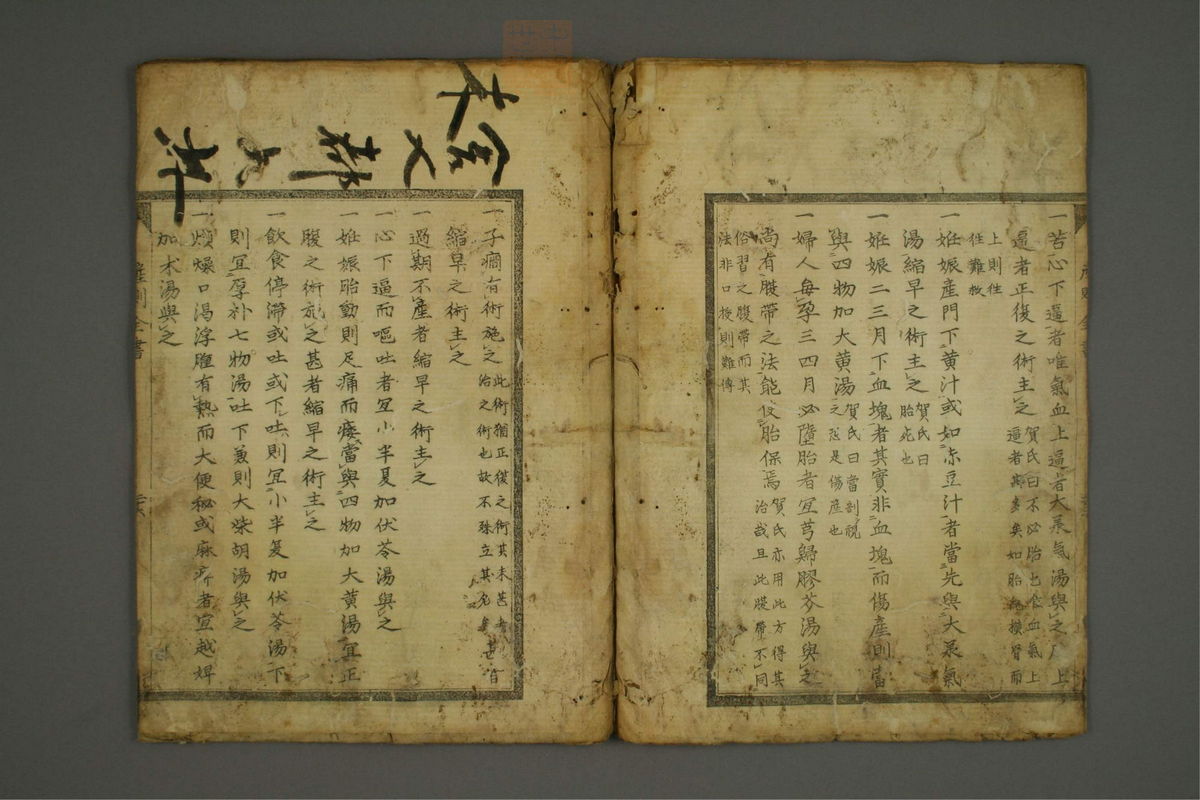 一苦心下逼者唯氣血上逼者大承氣湯與之凡上
逼者正復之術主之賀氏曰不必胎也食血氣上
逼者斯多矣如胎死橫骨而
上則往
往難救
一妊娠產門下黃汁或如赤豆汁者當先與大承氣
湯縮早之術主之賀氏曰
胎死也
一妊娠二三月下血塊者其實非血塊而傷產則當
與四物加大黃湯賀氏曰當剖視
之恐是傷產也
一婦人每孕三四月必墮胎者宜芎歸膠艾湯與之
尚有腹帶之法能使胎保焉賀氏亦用此方得其
治哉且此腹帶不同
俗習之腹帶而其
法非口授則難傳
一子癇有術施之此術猶正復之術其未甚者
治之術也故不殊立其名矣
縮早之術主之
一過期不產者縮早之術主之
一心下逼而嘔吐者宜小半夏加伏苓湯與之
一妊娠胎動則足痛而痿當與四物加大黃湯宜正
腹之術施之甚者縮早之術主之
一飲食停滯或吐或下吐則宜小半夏加伏苓湯下
則宜厚朴七物湯吐下兼則大柴胡湯與之
一煩燥口渴浮腫有熱而大便秘或麻痹者宜越婢
加朮湯與之
產則全書